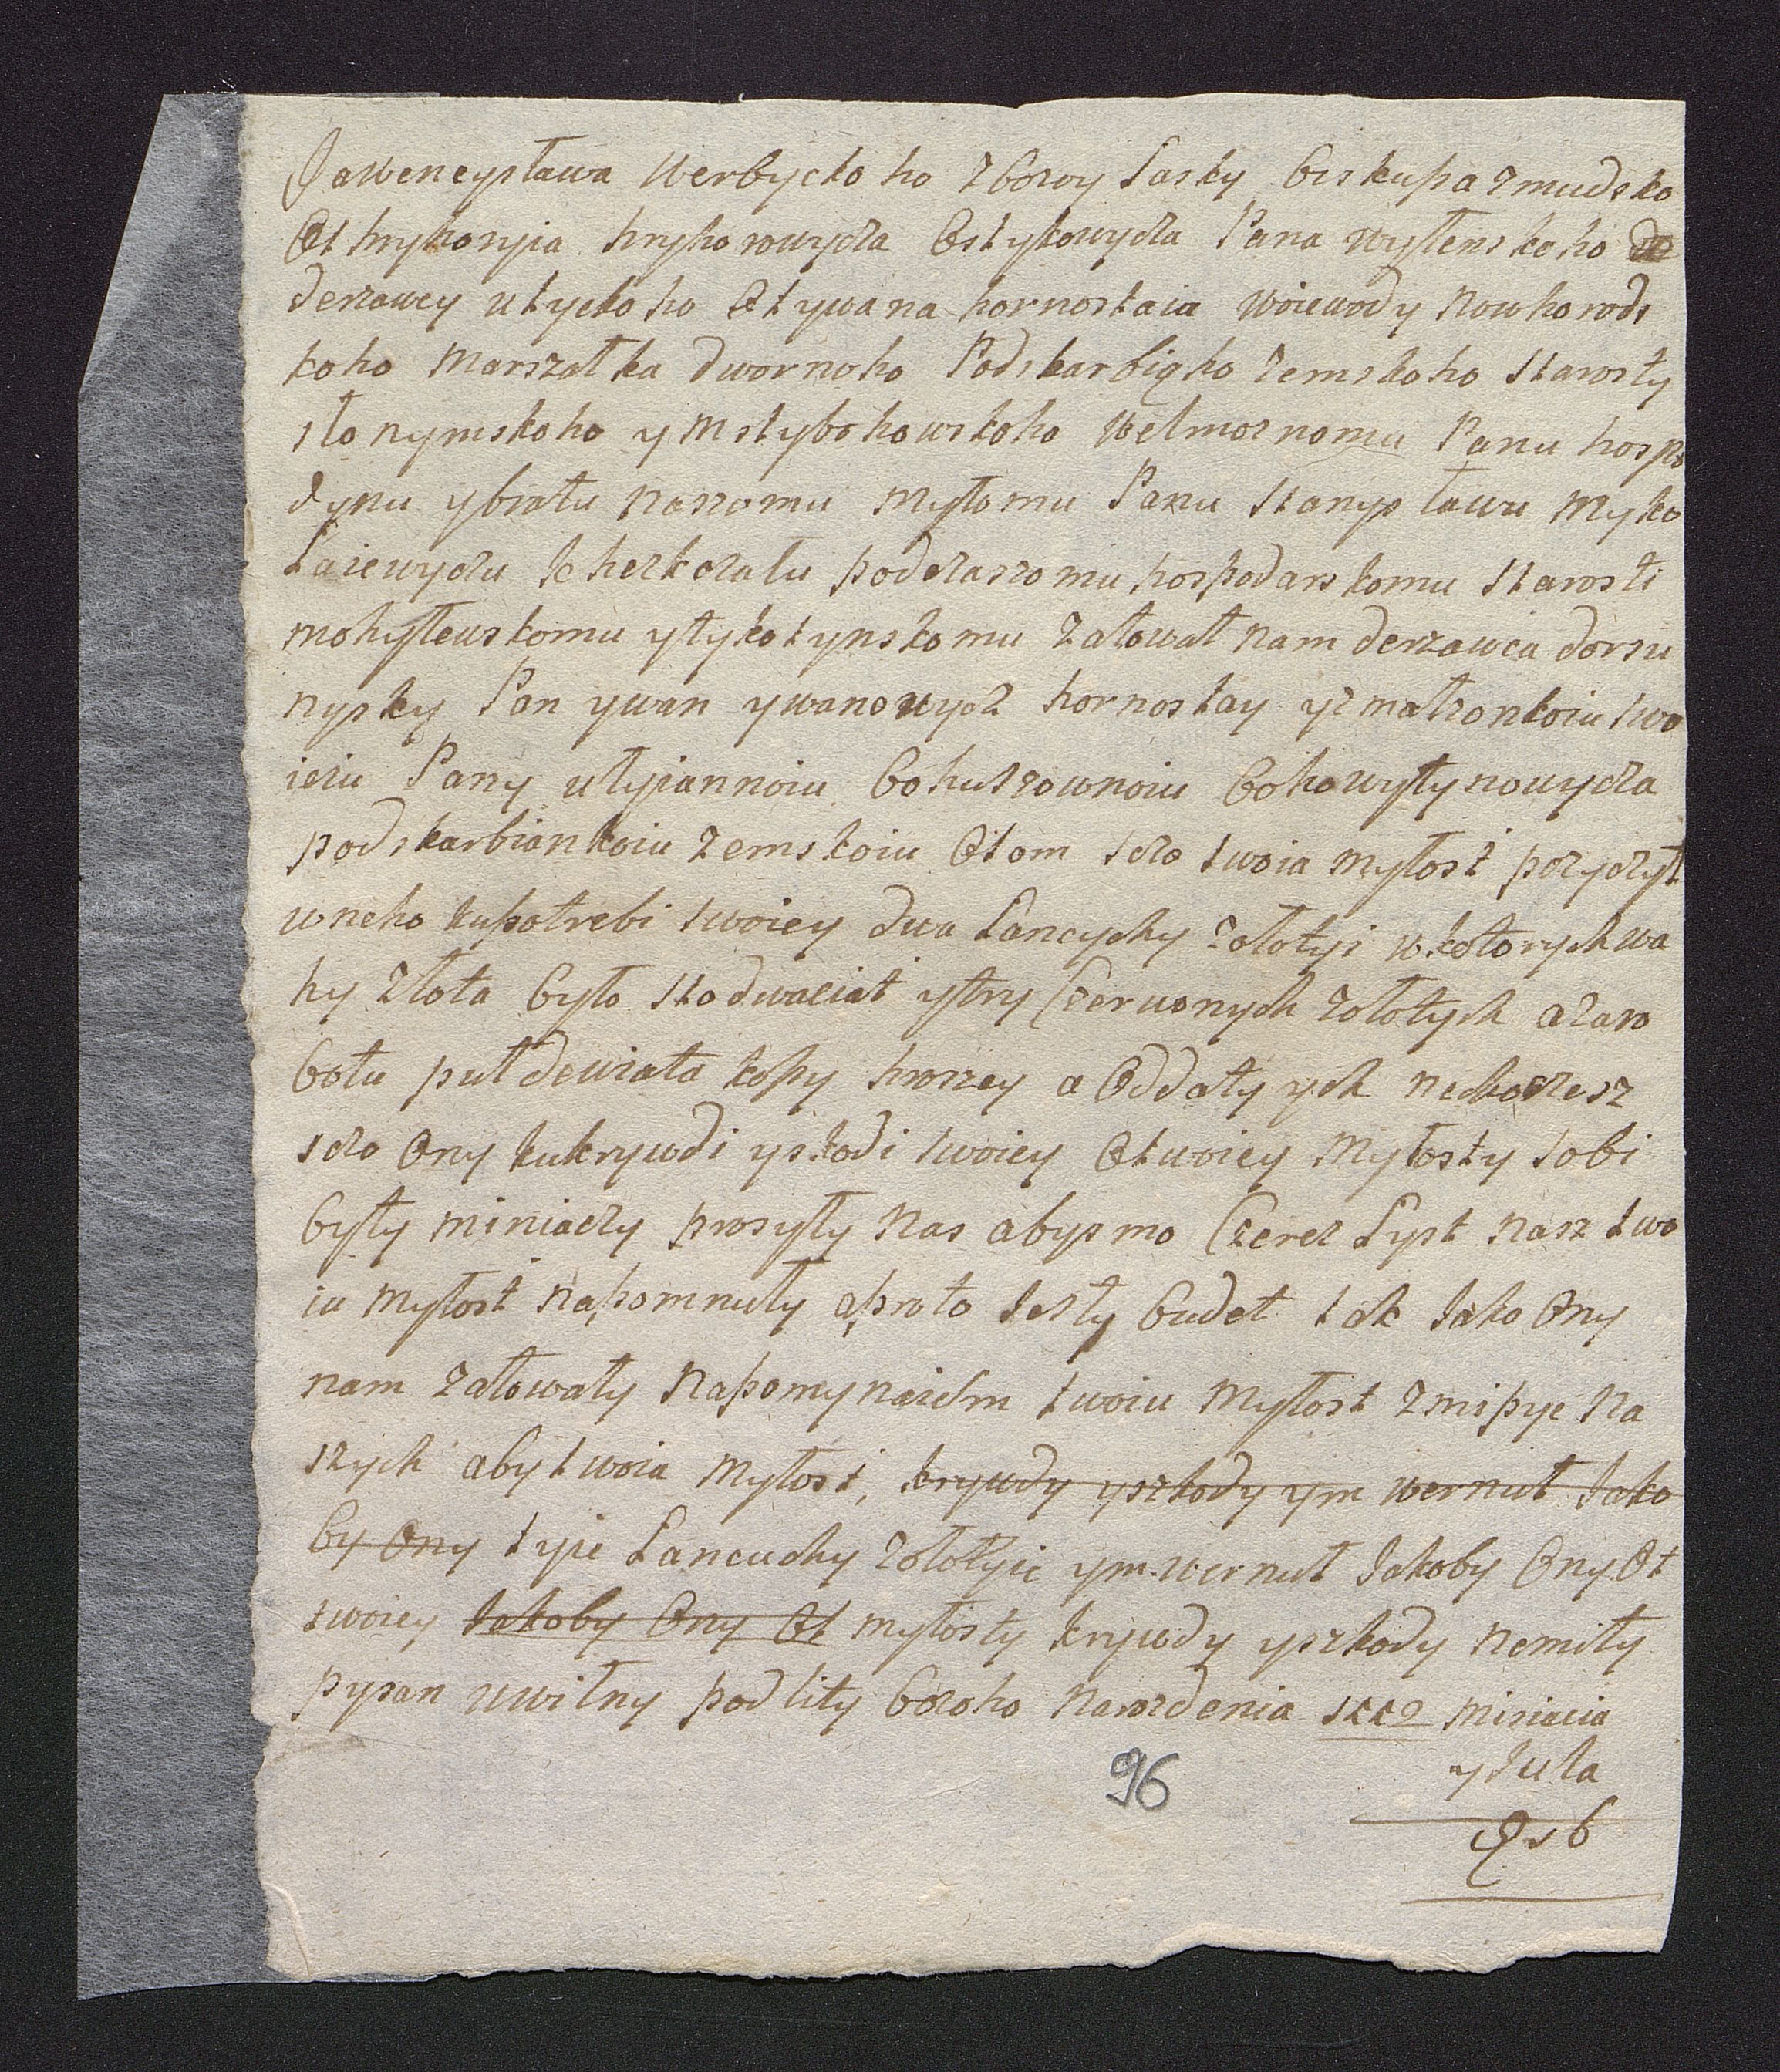 Jaweneysława Werbyckoho zbozoy Łasky biskupa zmudsko
Ot hryhoryia hryhorowycza Ostykowycza Pana wyłenskoho
derzawcy utyckoho Ot ywana hornostaia woiewody nowhorods
koho Marszałka dwornoho Podskarbiąho zemskoho starosty
słonymskoho y mstybohowskoho Welmoznomu Panu hospo
dynu ybratu naszomu myłomu Panu stanysławu Myko
Łaiewyczu Khezkozalu podczaszomu hospodarskomu starosti
mohyłewskomu ytykotynskomu załował nam derzawca dorsu
nysky Pan ywan ywanowycz hornostay yz małzonkoiu swo
ieiu Pany ułyiannoiu bohuszownoiu bohowytynowycza
podskarbiankoiu zemskoiu Otom sczo twoia myłost pozyczył
wneho kupotrebi swoiey dwa Łancychy zołotyi w kotorych wa
hy złota było sto dwaciat ytry Czerwonych zołotych azaro
botu puł dewiata kopy hroszey a Oddaty ych nechoczesz
sczo Ony kukrywdi yszkodi swoiey Otwoiey Myłosty sobi
były miniaczy prosyły nas abysmo Czerez Łyst nasz two
iu myłost napomnuły aproto Jesty budet tak Jako Ony
nam załowały napomynaiem twoiu myłost zmipye na
szych abytwoia myłost, krywdy yszkody ym wernuł Jako
by Ony tyie Łancuchy zołotyie ym wernuł Jakoby Ony Ot
twoiey Jakoby Ony Ot myłosty krywdy yszkody nemiły
pysan uwilny pod lity bozoho narozdenia 1552 misiacia
yJula
96
16